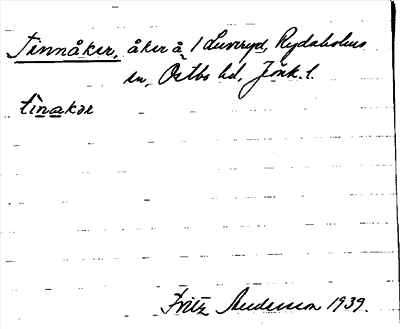 Tinnåker, åker å 1 Lunnryd, Rydaholms
sn, Östbo hd, Jönk. l.
tìnakər
Fritz Andersson 1939.